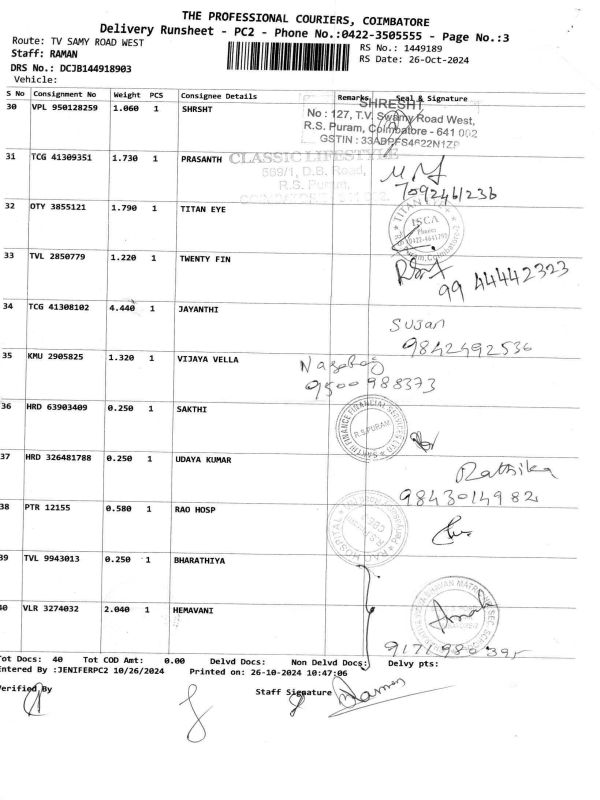 THE PROFESSIONAL COURIERS, COIMBATORE
Delivery Runsheet - PC2 - Phone No.:0422-3505555 - Page No.:3
Route: TV SAMY ROAD WEST
RS No.: 1449189
Staff: RAMAN
RS Date: 26-Oct-2024
DRS No.: DCJB144918903
Vehicle:
S No Consignment No Weight PCS Consignee Details Remarks Seal & Signature
30 VPL 950128259 1.060 1 SHRSHT
SHRESHT
No : 127, T.V. Swamy Road West,
R.S. Puram, Coimbatore - 641 002
GSTIN :
31 TCG 41309351 1.730 1 PRASANTH
CLASSIC LIFESTYLE
569/1, D.B. Road,
R.S. Puram,
7092461236
32 OTY 3855121 1.790 1 TITAN EYE
ISCA
Phones
33 TVL 2850779 1.220 1 TWENTY FIN
99 44442323
34 TCG 41308102 4.440 1 JAYANTHI
Sujan
9842492536
35 KMU 2905825 1.320 1 VIJAYA VELLA
9500988373
36 HRD 63903409 0.250 1 SAKTHI
R.S.PURAM
37 HRD 326481788 0.250 1 UDAYA KUMAR
Rathika
9843014982
38 PTR 12155 0.580 1 RAO HOSP
RAO HOSPITAL
39 TVL 9943013 0.250 1 BHARATHIYA
40 VLR 3274032 2.040 1 HEMAVANI
9171980395
Tot Docs: 40 Tot COD Amt: 0.00 Delvd Docs: Non Delvd Docs: Delvy pts:
Entered By :JENIFERPC2 10/26/2024 Printed on: 26-10-2024 10:47:06
Verified By Staff Signature
Raman